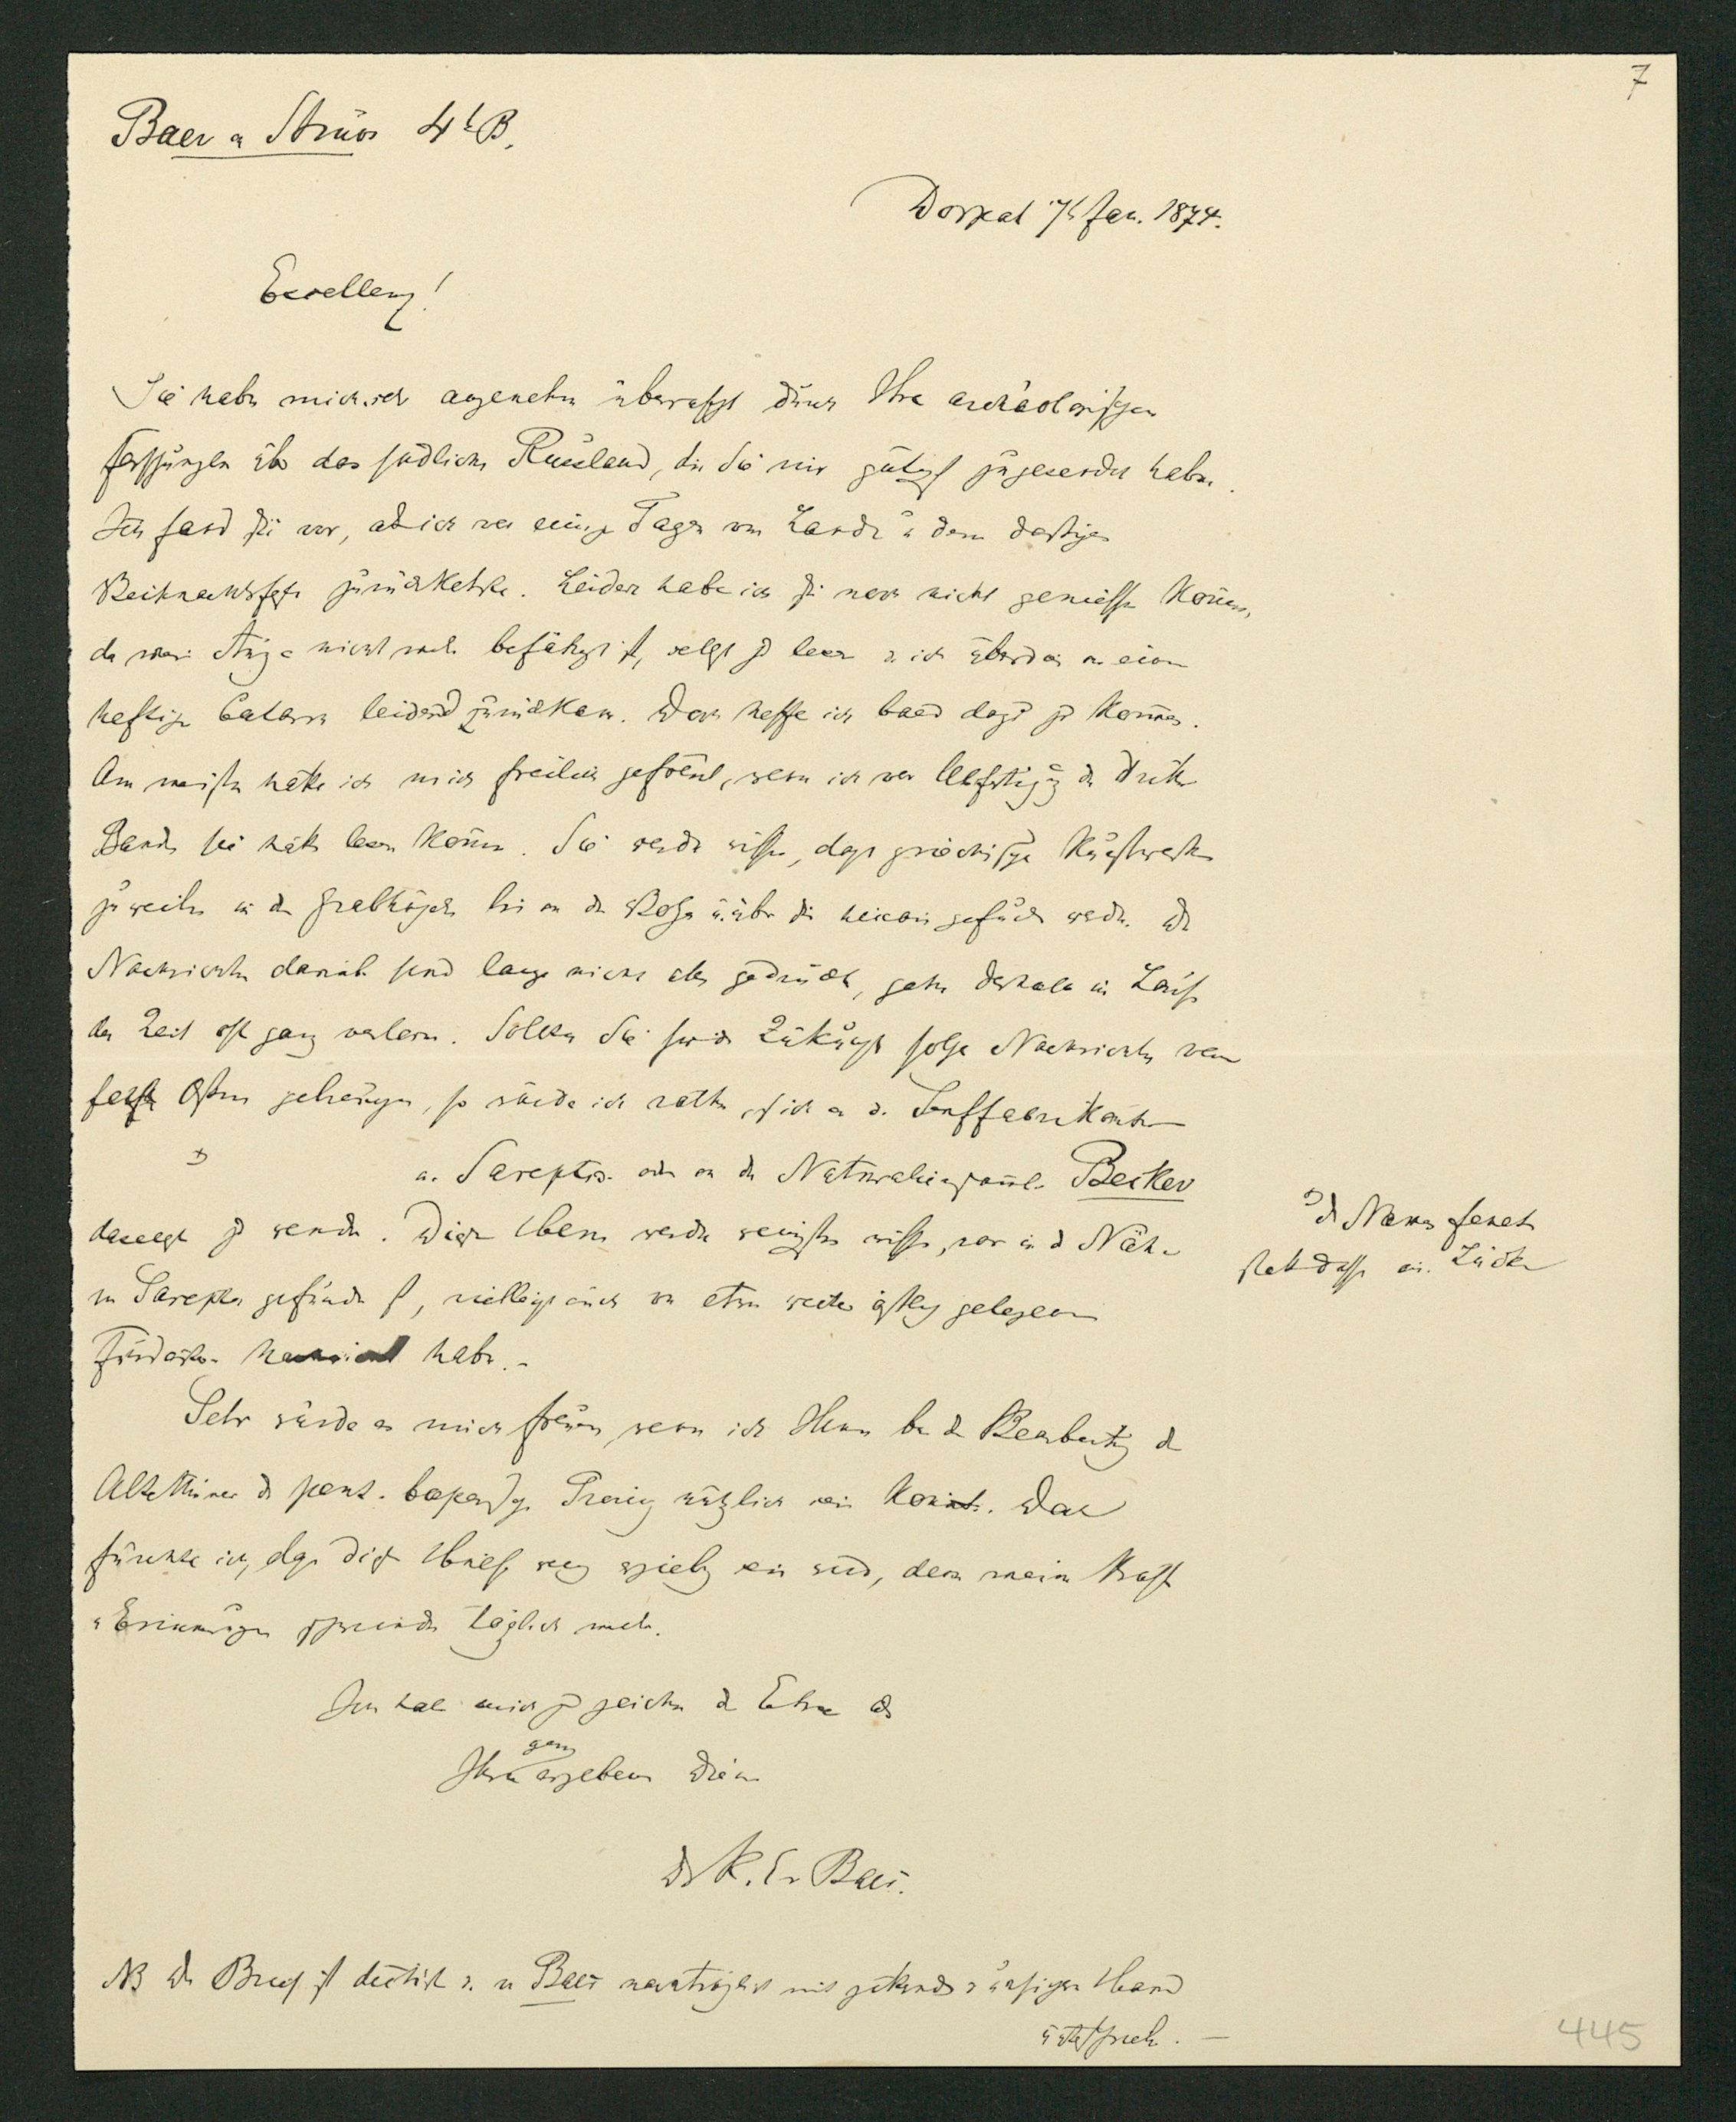 7
Baer a Struve 4t B.
Dorpat 7t Jan. 1874.
Excellenz!
Sie haben mich sehr angenehm überrascht durch Ihre archäologischen
Forschungen über das südliche Russland, die Sie mir gütigst zugesendet haben.
Ich fand sie vor, als ich vor einigen Tagen vom Lande u dem dortigen
Weihnachtsfeste zurückkehrte. Leider habe ich sie noch nicht geniessen können,
da mein Auge nicht mehr befähigt ist, selbst zu lesen u ich überdies an einem
heftigen Catarrh leidend zurückkam. Doch hoffe ich bald dazu zu kommen.
Am meisten hätte ich mich freilich gefreut, wenn ich vor Abfertigung des dritten
Bandes sie hätte lesen können. Sie werden wissen, dass griechische Kunstwerke
zuweilen in den Grabhügeln bis an die Wolga u. über die hinaus gefunden werden. Die
Nachrichten darüber sind lange nicht alle gedruckt, gehen deshalb im Laufe
der Zeit oft ganz verloren. Sollten Sie für die Zukunft solche Nachrichten vom
fernen Osten gebrauchen, so würde ich rathen, sich an d. Senffabrikanten
*) in Sarepta oder an den Naturaliensamml. Becker
daselbst zu wenden. Diese Herren werden wenigstens wissen, was in d Nähe
von Sarepta gefunden ist, vielleicht auch von etwas weiter östlich gelegenen
Fundorten Nachricht haben.-
*) Der Name fehlt
statt dessen eine Lücke
Sehr würde es mich freuen, wenn ich Ihnen bei der Bearbeitung der
Alterthümer des pont. bosporischen Provinz nützlich sein könnte. Doch
fürchte ich, dass diese Hülfe wenig ergiebig sein wird, denn meine Kraft
u Erinnerungen schwinden täglich mehr.
Ich habe mich zu zeichnen die Ehre als
Ihren ganz ergebenen Diener
Dr K. E v Baer.
NB Der Brief ist dictirt u. von Baer nachträglich mit zitternder unsicherer Hand
unterschrieben. —
445